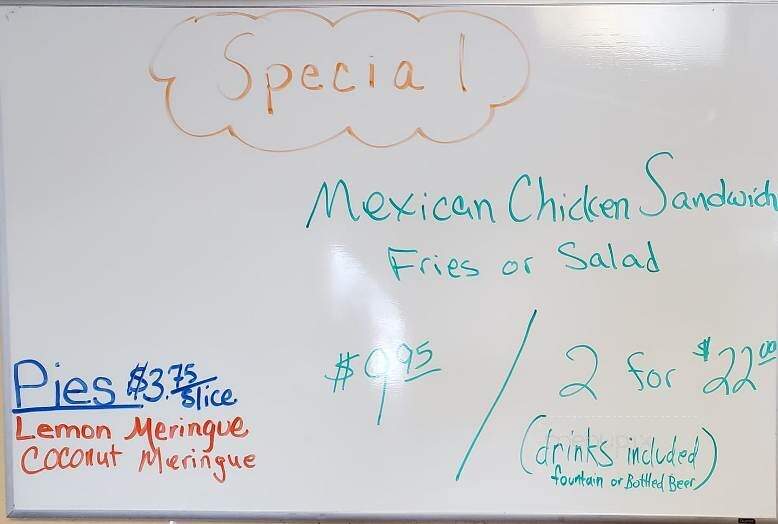 Special
Mexican Chicken Sandwich
Fries or Salad
$9.95 / 2 for $22.00
(drinks included)
fountain or Bottled Beer
Pies $3.75/slice
Lemon Meringue
Coconut Meringue